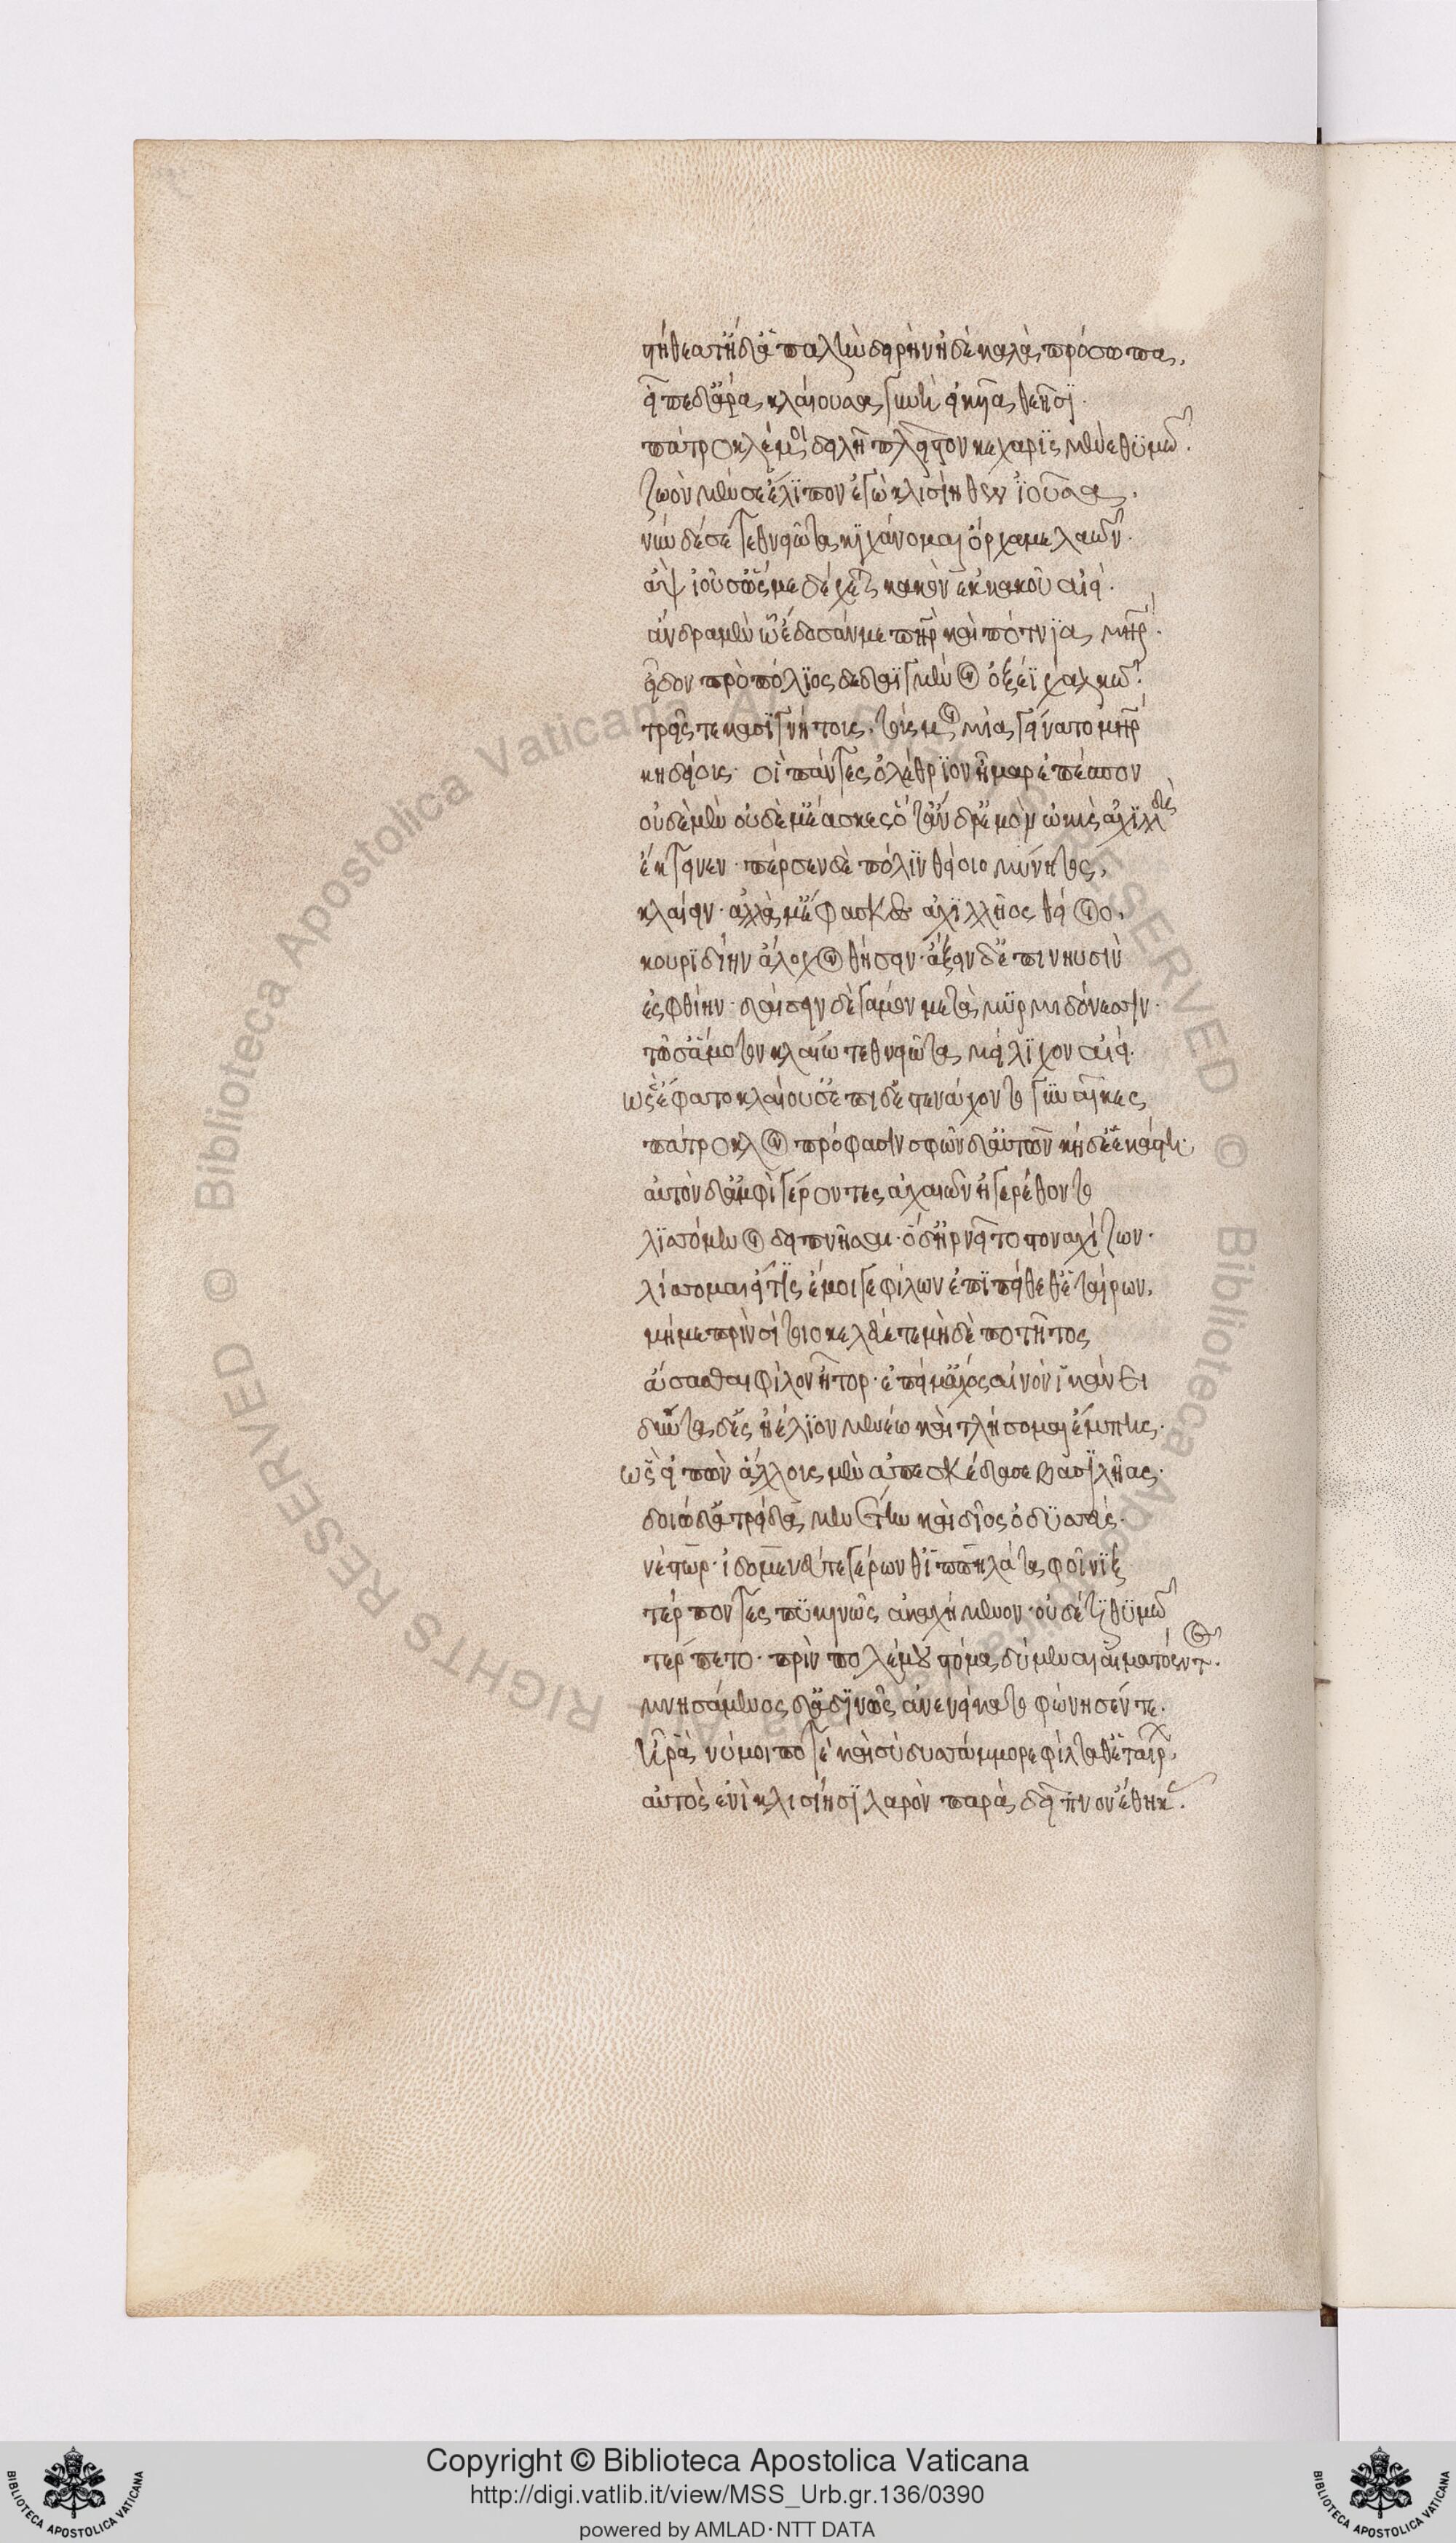 στήθεά τ' ἠδ' ἁπαλὴν δειρὴν ἠδὲ καλὰ πρόσωπα.
εἶπε δ' ἄρα κλαίουσα γυνὴ εἰκυῖα θεῇσι.
πάτροκλέ μοι δειλῇ πλεῖστον κεχαρισμένε θυμῷ.
ζωὸν μέν σε ἔλιπον ἐγὼ κλισίηθεν ἰοῦσα.
νῦν δέ σε τεθνειῶτα κιχάνομαι ὄρχαμε λαῶν.
ἂψ ἰοῦσ' ὥς μοι δέχεται κακὸν ἐκ κακοῦ αἰεί.
ἄνδρα μὲν ᾧ ἔδοσάν με πατὴρ καὶ πότνια μήτηρ.
εἶδον πρὸ πόλιος δεδαϊγμένον ὀξέϊ χαλκῷ.
τρεῖς τε κασιγνήτους. τούς μοι μία γείνατο μήτηρ
κηδείους· οἳ πάντες ὀλέθριον ἦμαρ ἐπέσπον
οὐδὲ μὲν οὐδέ μ' ἔασκες ὅτ' ἄνδρ' ἐμὸν ὠκὺς ἀχιλλεὺς
ἔκτεινεν· πέρσεν δὲ πόλιν θείοιο μύνητος,
κλαίειν· ἀλλά μ' ἔφασκες ἀχιλλῆος θείοιο.
κουριδίην ἄλοχον θήσειν· ἄξειν δ' ἐπὶ νηυσὶν
ἐς φθίην· δαίσειν δὲ γάμον μετὰ μυρμιδόνεσσιν.
τῶ σ' ἄμοτον κλαίω τεθνειῶτα μείλιχον αἰεί.
ὣς ἔφατο κλαίουσ' ἐπὶ δὲ στενάχοντο γυναῖκες
πάτροκλον πρόφασιν σφῶν δ' αὐτῶν κήδε' ἑκάστη.
αὐτὸν δ' ἀμφὶ γέροντες ἀχαιῶν ἠγερέθοντο
λισσόμενοι δειπνῆσαι· ὁ δ' ἠρνεῖτο στοναχίζων.
λίσσομαι εἴ τις ἔμοιγε φίλων ἐπιπείθεθ' ἑταίρων.
μή με πρὶν σίτοιο κελεύετε μηδὲ ποτῆτος
ἄσασθαι φίλον ἦτορ· ἐπεί μ' ἄχος αἰνὸν ἱκάνει
δύντα δ' ἐς ἠέλιον μενέω καὶ τλήσομαι ἔμπης.
ὣς εἰπὼν ἄλλους μὲν ἀπεσκέδασε βασιλῆας.
δοιὼ δ' ἀτρείδα μενέτην καὶ δῖος ὀδυσσεύς.
νέστωρ· ἰδομενεύς τε γέρων θ' ἱππηλάτα φοῖνιξ
τέρποντες πυκινῶς ἀκαχήμενον· οὐδέ τι θυμῷ
τέρπετο· πρὶν πολέμου στόμα δύμεναι αἱματόεντος.
μνησάμενος δ' ἁδινῶς ἀνενείκατο φώνησέν τε.
ἦ ῥά νύ μοι ποτὲ καὶ σὺ δυσάμμορε φίλταθ' ἑταίρων
αὐτὸς ἐνὶ κλισίῃσι λαρὸν παρὰ δεῖπνον ἔθηκας.
Copyright © Biblioteca Apostolica Vaticana
http://digi.vatlib.it/view/MSS_Urb.gr.136/0390
powered by AMLAD·NTT DATA